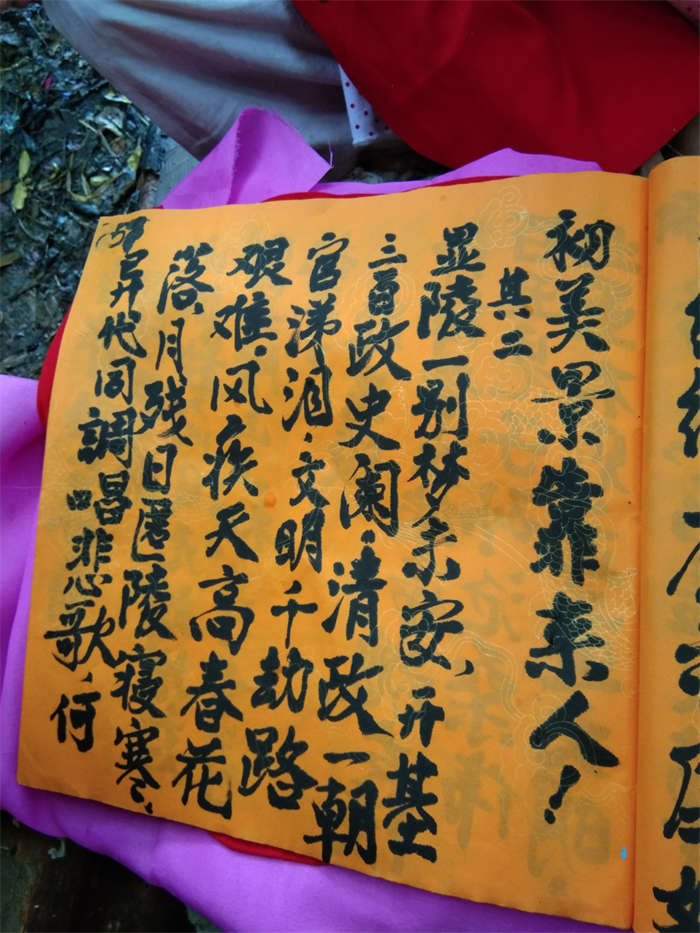 初美景靠来人！
其二
显陵一别梦未安、开基
三百政史阑。清政一朝
官涕泪。文明千劫路
艰难。风疾天高春花
落，月残日匿陵寝寒、
异代同調唱悲歌，何